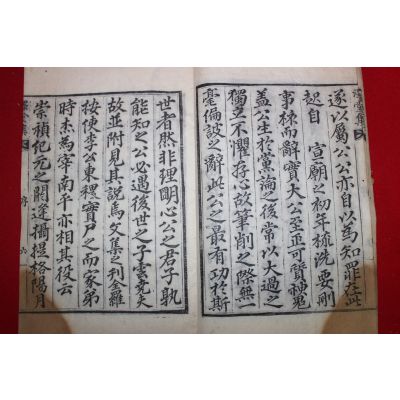 遂以屬公公亦自以爲知罪在此
起自 宣廟之初年梳洗要刪
事核而辭實大公至正可質神鬼
盖公生於黨論之後常以大過之
獨立不懼存心故筆削之際無一
毫偏詖之辭此公之最有功於斯
世者然非理明心公之君子孰
能知之公必遇後世之子雲堯夫
故並附見其說焉文集之刊全羅
按使李公東稷實尸之而家弟
時杰爲宰南平亦相其役云
崇禎紀元之閼逢攝提格陽月
序 六